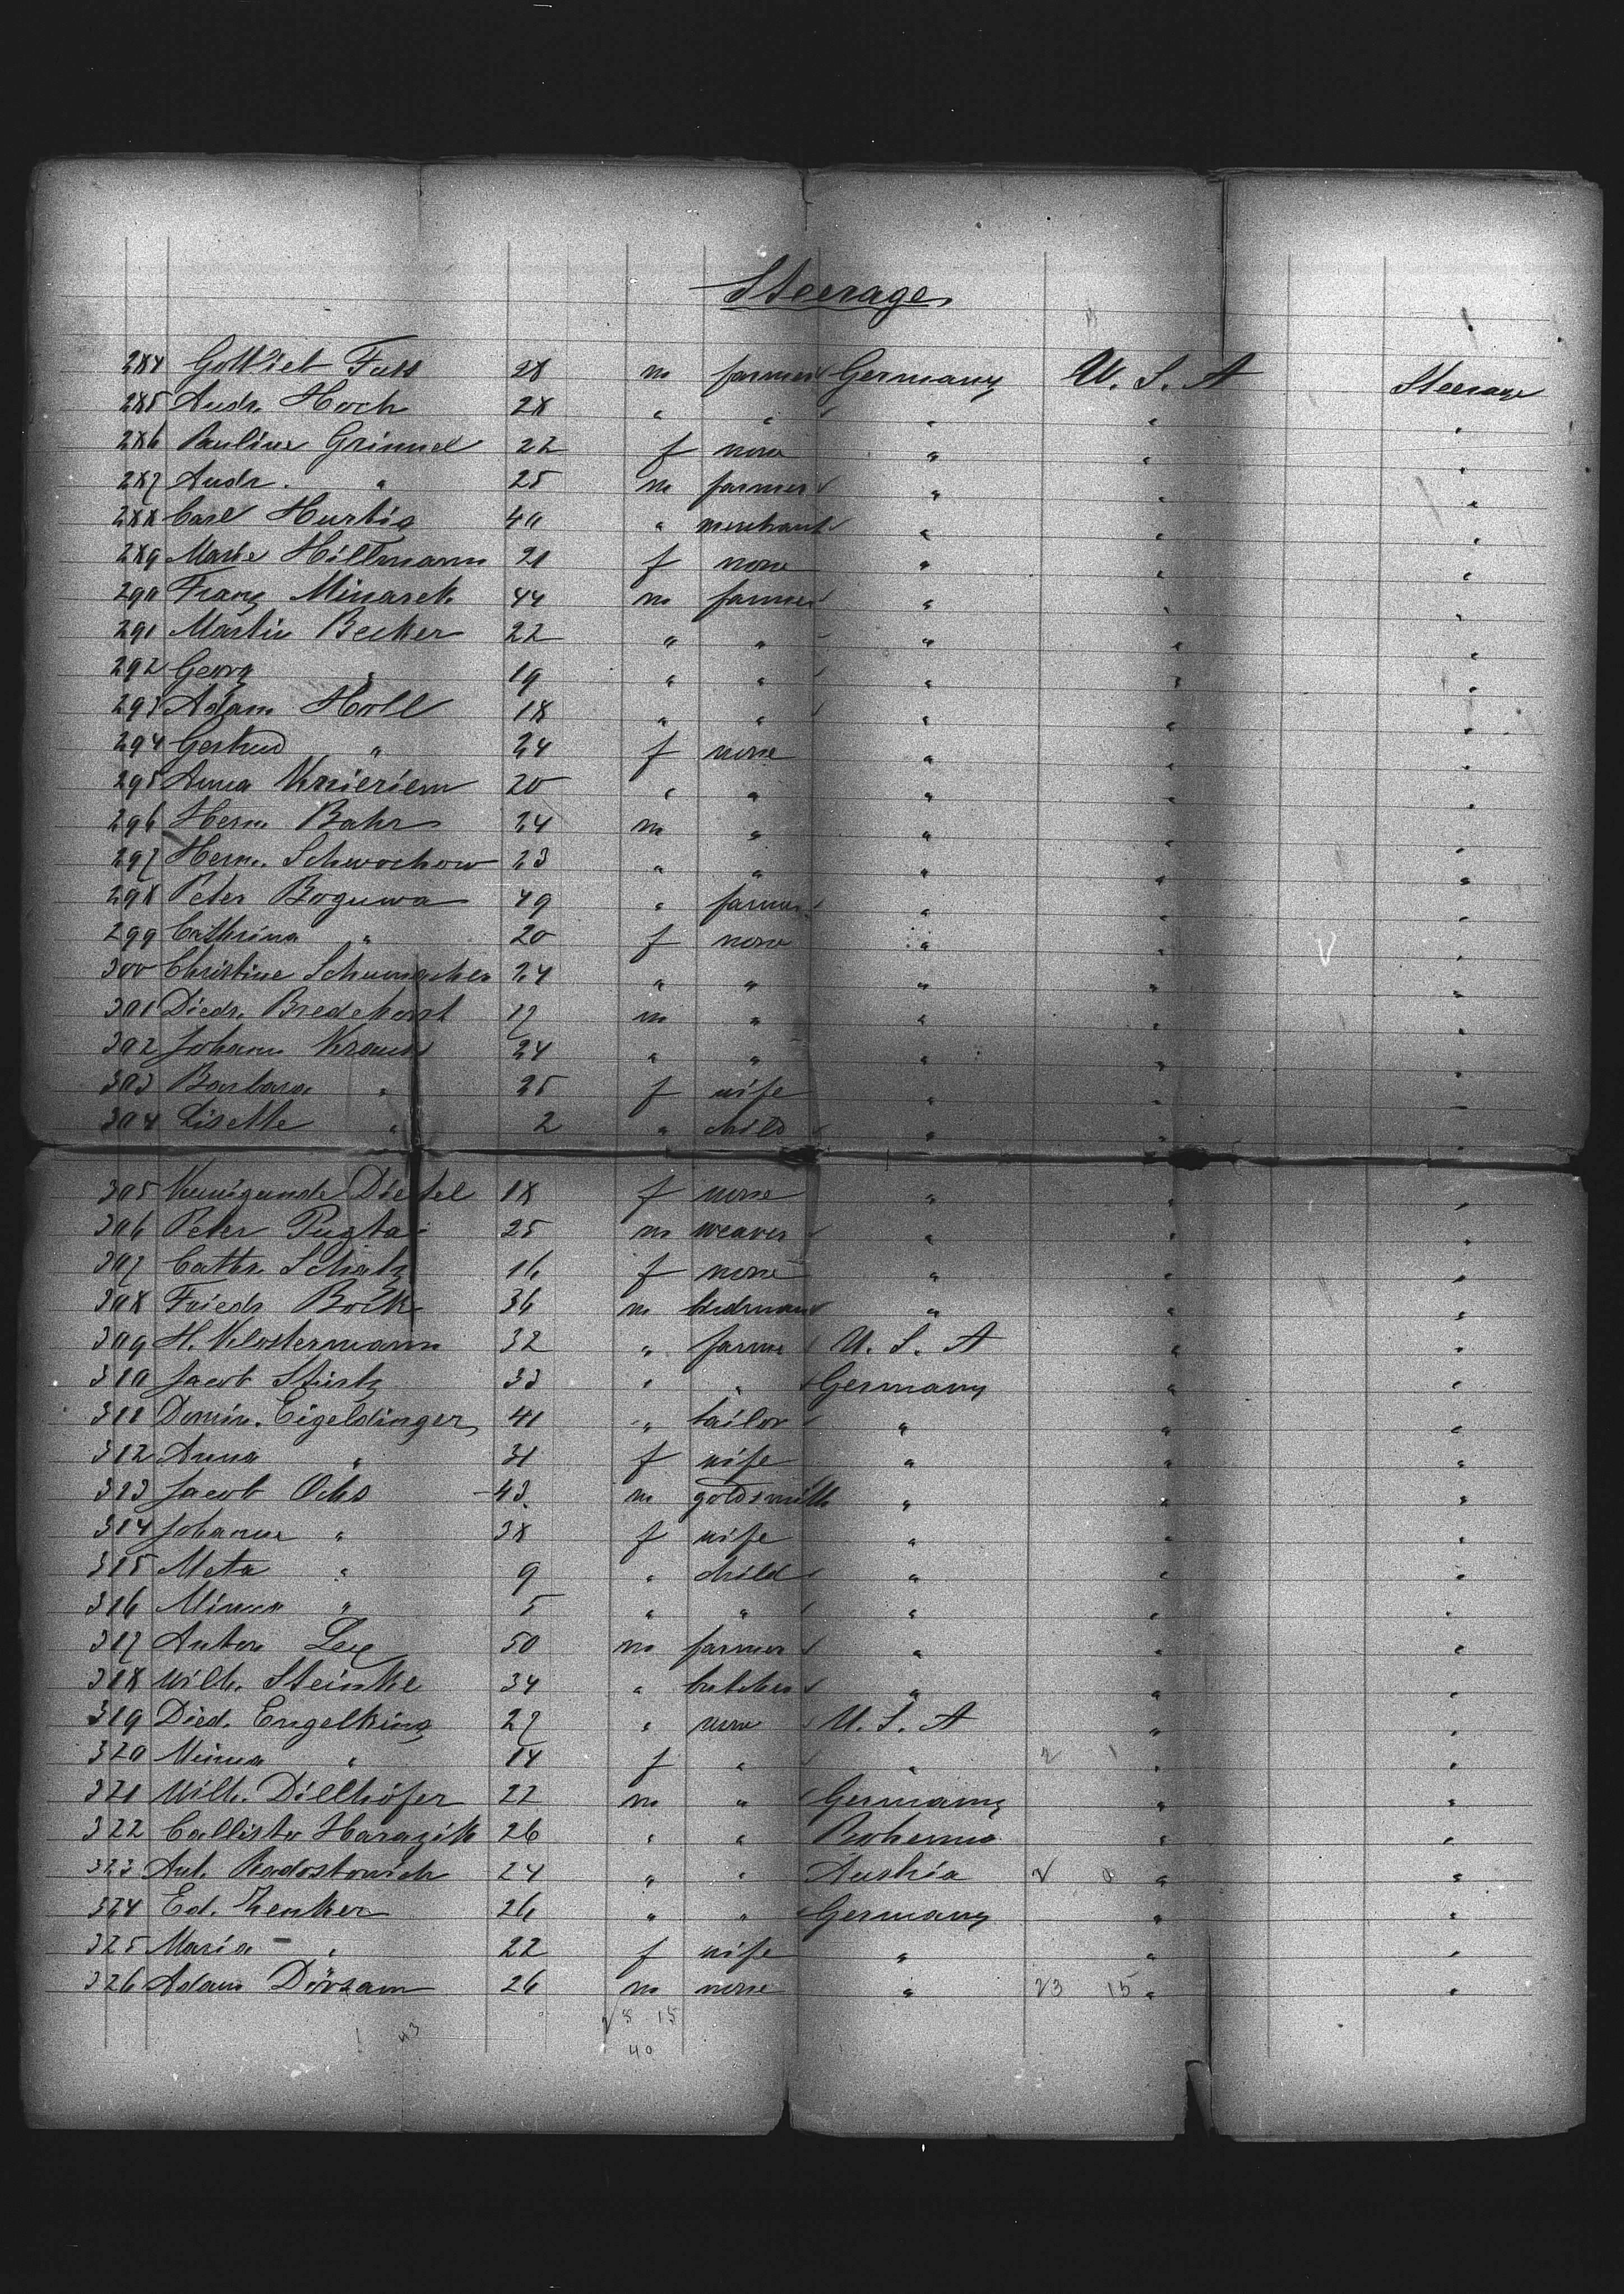 Steerage
284 Gottlieb Fuss 28 m farmer Germany U. S. A Steerage
285 Andr. Hoch 28 " " " " "
286 Pauline Grimmel 22 f none " " "
287 Andr. " 25 m farmer " " "
288 Carl Hurtig 40 " merchant " " "
289 Marie Hillmann 21 f none " " "
290 Franz Minarek 44 m farmer " " "
291 Martin Becker 22 " " " " "
292 Georg " 19 " " " " "
293 Adam Holl 18 " " " " "
294 Gertrud " 24 f none " " "
295 Anna Knieriem 20 " " " " "
296 Herm. Bahr 24 m " " " "
297 Herm. Schwochow 23 " " " " "
298 Peter Boguwa 49 " farmer " " "
299 Cathrina " 20 f none " " "
300 Christine Schumacher 24 " " " " "
301 Diedr. Bredehorst 17 m " " " "
302 Johann Kraus 24 " " " " "
303 Barbara " 25 f wife " " "
304 Lisette " 2 " child " " "
305 Kunigunde Dietel 18 f none " " "
306 Peter Pugta 25 m weaver " " "
307 Cathr. Schatz 16 f none " " "
308 Friedr. Bock 36 m " " "
309 H. Klostermann 32 " farmer U. S. A " "
310 Jacob Sturtz 33 " " Germany " "
311 Domin. Eigeldinger 41 " tailor " " "
312 Anna " 31 f wife " " "
313 Jacob Ochs 43 m goldsmith " " "
314 Johanna " 38 f wife " " "
315 Meta " 9 " child " " "
316 Minna " 5 " " " " "
317 Anton Ley 50 m farmer " " "
318 Wilh. Steinke 34 " butcher " " "
319 Died. Engelking 27 " none U. S. A " "
320 Minna " 14 f " " " "
321 Wilh. Dillhöfer 22 m " Germany " "
322 Callisto Harazik 26 " " Bohemia " "
323 Ant. Radostowich 24 " " Austria " "
324 Ed. Zenker 26 " " Germany " "
325 Maria " 22 f wife " " "
326 Adam Dörsam 26 m none " 23 15 " "
43 15
40